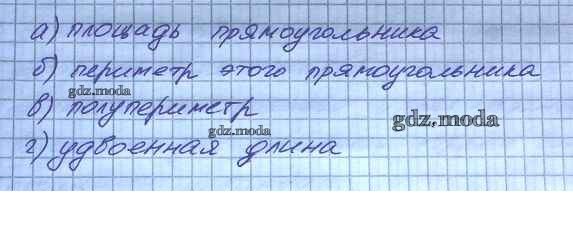 а) площадь прямоугольника
б) периметр этого прямоугольника
gdz.moda
в) полупериметр
gdz.moda
gdz.moda
г) удвоенная длина